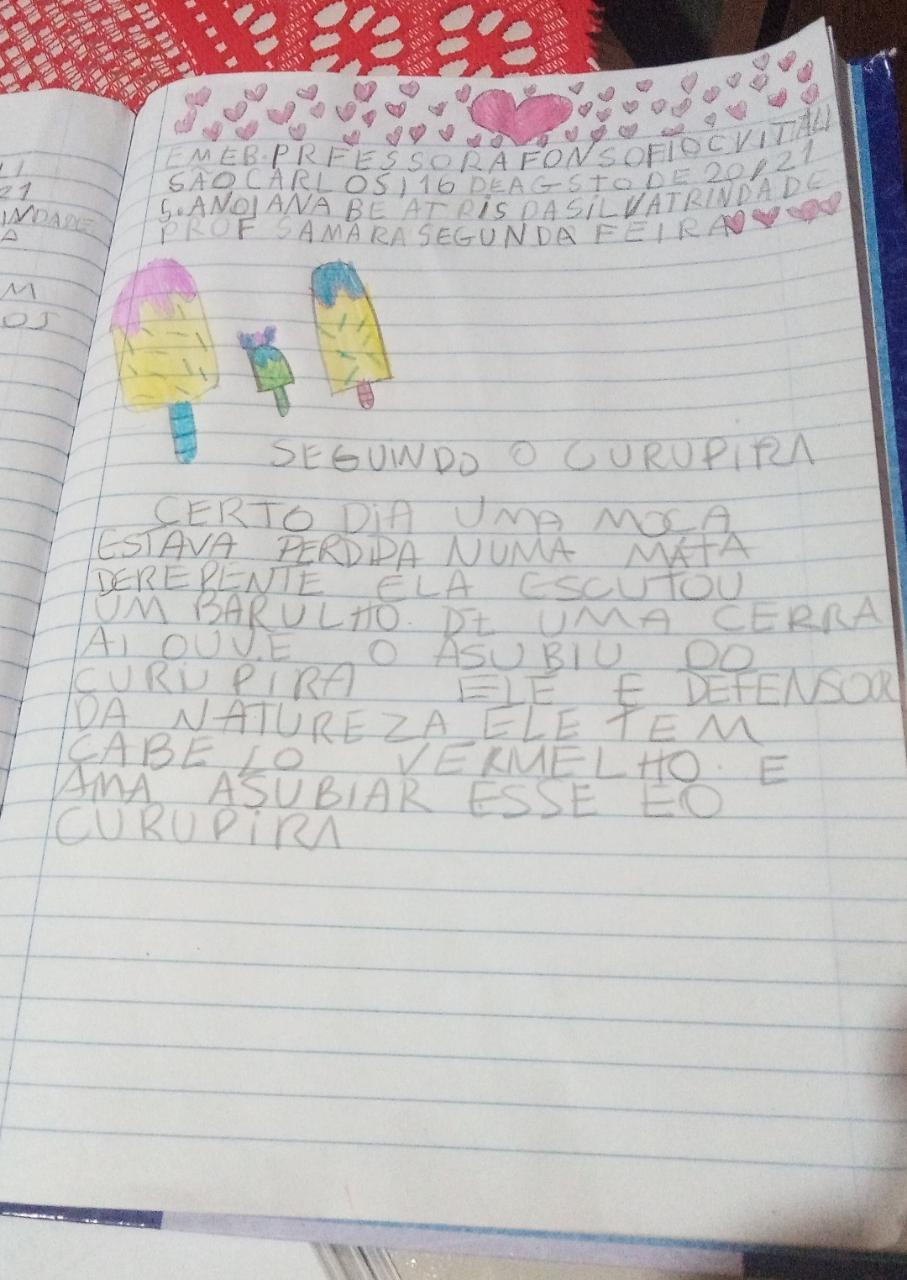 EMEB. PRFESSOR AFONSO FIOCVITALI
SÃO CARLOS, 16 DE AGSTO DE 20/21
5.ANO ANA BEATRIS DA SILVA TRINDADE
PROF SAMARA SEGUNDA FEIRA
SEGUINDO O CURUPIRA
CERTO DIA UMA MOCA
ESTAVA PERDIDA NUMA MATA
DEREPENTE ELA ESCUTOU
UM BARULHO. DE UMA CERRA
AI OUVE O ASUBIU DO
CURUPIRA ELE E DEFENSOR
DA NATUREZA ELE TEM
CABELO VERMELHO. E
AMA ASUBIAR ESSE EO
CURUPIRA
21
INDADE
A
M
OS